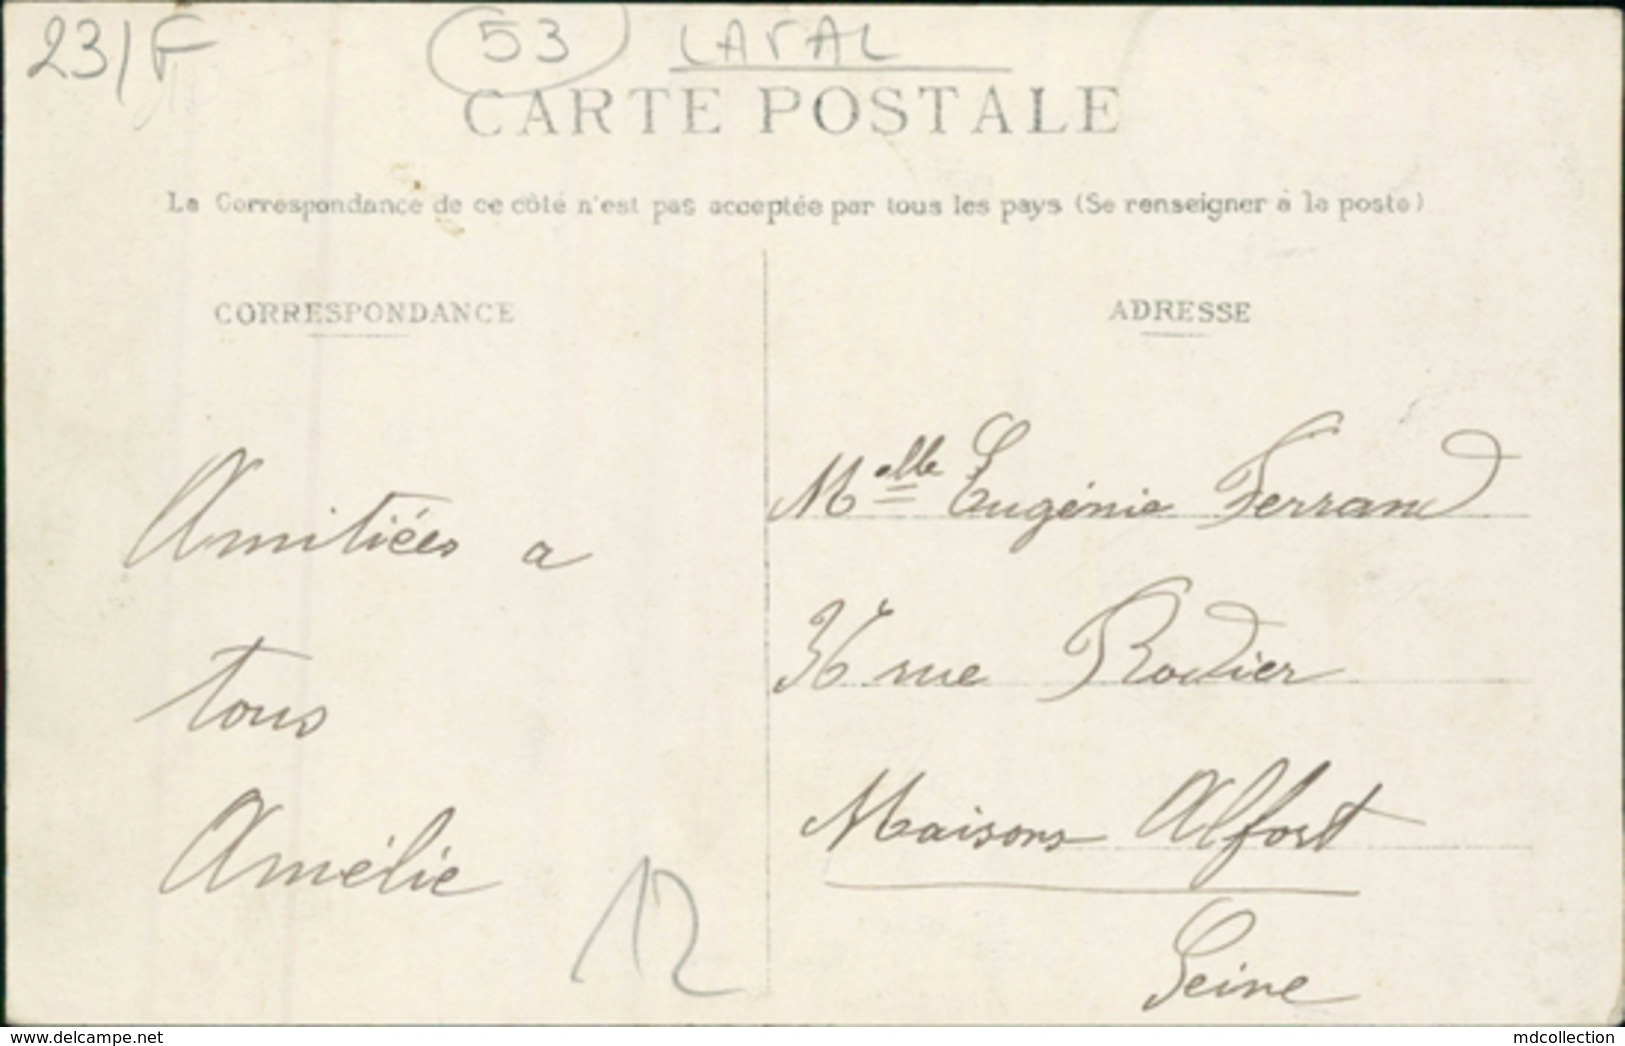 23/F
53 LAVAL
CARTE POSTALE
La Correspondance de ce côté n'est pas acceptée par tous les pays (Se renseigner à la poste)
CORRESPONDANCE
Amitiées a
tous
Amélie
12
ADRESSE
Melle Eugénie Ferrand
36 rue Rodier
Maisons Alfort
Seine
https://www.delcampe.net
mdcollection